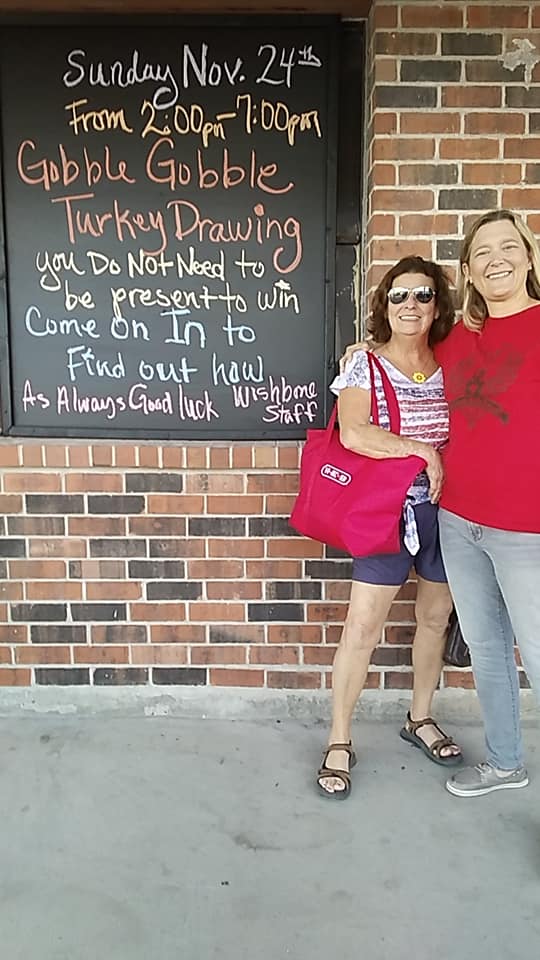 Sunday Nov. 24th
From 2:00pm-7:00pm
Gobble Gobble
Turkey Drawing
you Do Not Need to
be present to win
Come on In to
Find out how
As Always Good luck Wishbone
Staff
H-E-B